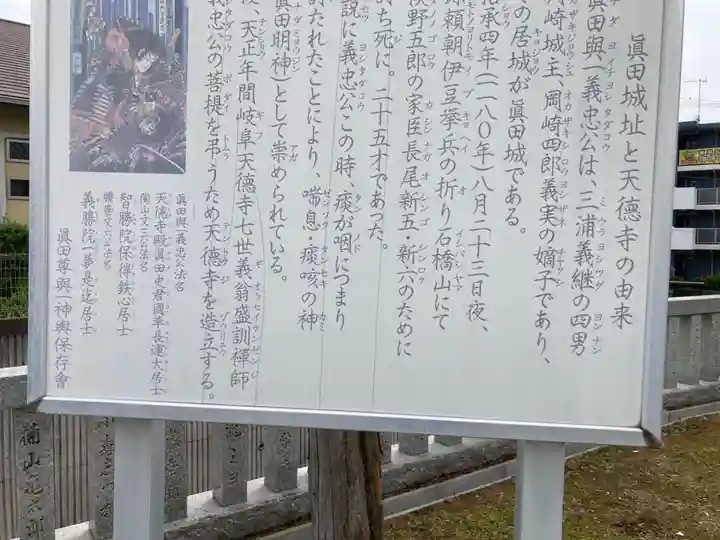 眞田城址と天德寺の由来
眞田與一義忠公は、三浦義継の四男
崎城主、岡崎四郎義実の嫡子であり、
の居城が眞田城である。
治承四年(一一八〇年)八月二十三日夜、
源頼朝伊豆挙兵の折り石橋山にて
俣野五郎の家臣長尾新五・新六のために
ち死に。二十五才であった。
説に義忠公この時、痰が咽につまり
討たれたことにより、喘息・痰咳の神
眞田明神)として崇められている。
後、天正年間岐阜天德寺七世義翁盛訓禅師
義忠公の菩提を弔うため天德寺を造立する。
眞田與一義忠公法名
天德寺殿眞田史君國率長運大居士
陶山文三公法名
智勝院保得鉄心居士
公法名
義勝院一夢是迄居士
眞田尊與一神輿保存會